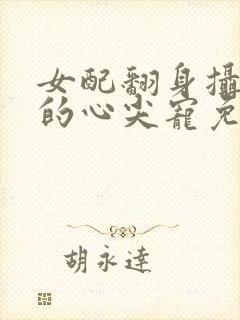 女配翻身攝
的心尖寵免
胡永達